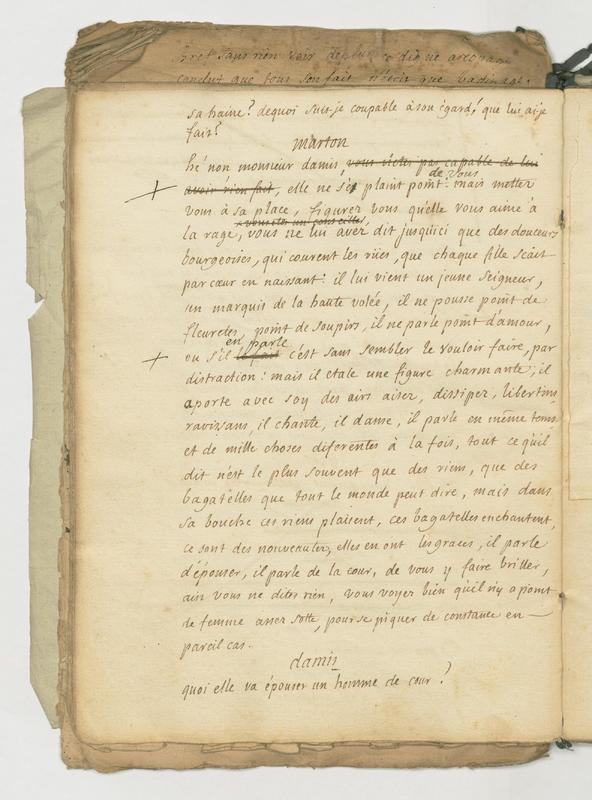 bref sans rien voir
conclut que tous son fait n'etoit que badinage
sa haine? dequoi suis-je coupable à son égard, que lui ai-je
fait?
marton
hé non monsieur damis, vous n'etes pas capable de lui
avoir rien fait, elle ne s'e plaint point de vous. mais metter
vous à sa place, figurez vous qu'elle vous aime à
la rage, vous ne lui avez dit jusqu'ici que des douceurs
bourgeoises, qui courent les rües, que chaque fille scait
par cœur en naissant: il lui vient un jeune seigneur,
un marquis de la haute volée, il ne pousse point de
fleuretes, point de soupirs, il ne parle point d'amour,
en parle
ou s'il le fait c'est sans sembler le vouloir faire, par
distraction: mais il etale une figure charmante, il
aporte avec soy des airs aisez, dissipez, libertins,
ravissans, il chante, il danse, il parle en même tems
et de mille choses diferentes à la fois, tout ce qu'il
dit n'est le plus souvent que des riens, que des
bagatelles que tout le monde peut dire, mais dans
sa bouche ces riens plaisent, ces bagatelles enchantent,
ce sont des nouveautez, elles en ont les graces, il parle
d'épouser, il parle de la cour, de vous y faire briller,
vous ne dites rien, vous voyez bien qu'il n'y a point
de femme assez sotte, pour se piquer de constance en
pareil cas.
damis
quoi elle va épouser un homme de cour?